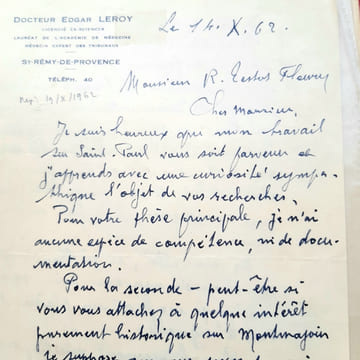 DOCTEUR EDGAR LEROY
LICENCIÉ ÈS-SCIENCES
LAURÉAT DE L'ACADÉMIE DE MÉDECINE
MÉDECIN EXPERT DES TRIBUNAUX
ST-RÉMY-DE-PROVENCE
TÉLÉPH. 40
Le 14. X. 62.
19/X/1962
Monsieur R. Testot Ferry
Cher Monsieur,
Je suis heureux que mon travail
sur Saint-Paul vous soit parvenu et
j'apprends avec une curiosité sympa-
thique l'objet de vos recherches.
Pour votre thèse principale, je n'ai
aucune espèce de compétence, ni de docu-
mentation.
Pour la seconde - peut-être si
vous vous attachez à quelque intérêt
purement historique sur Montmajour
je suppose